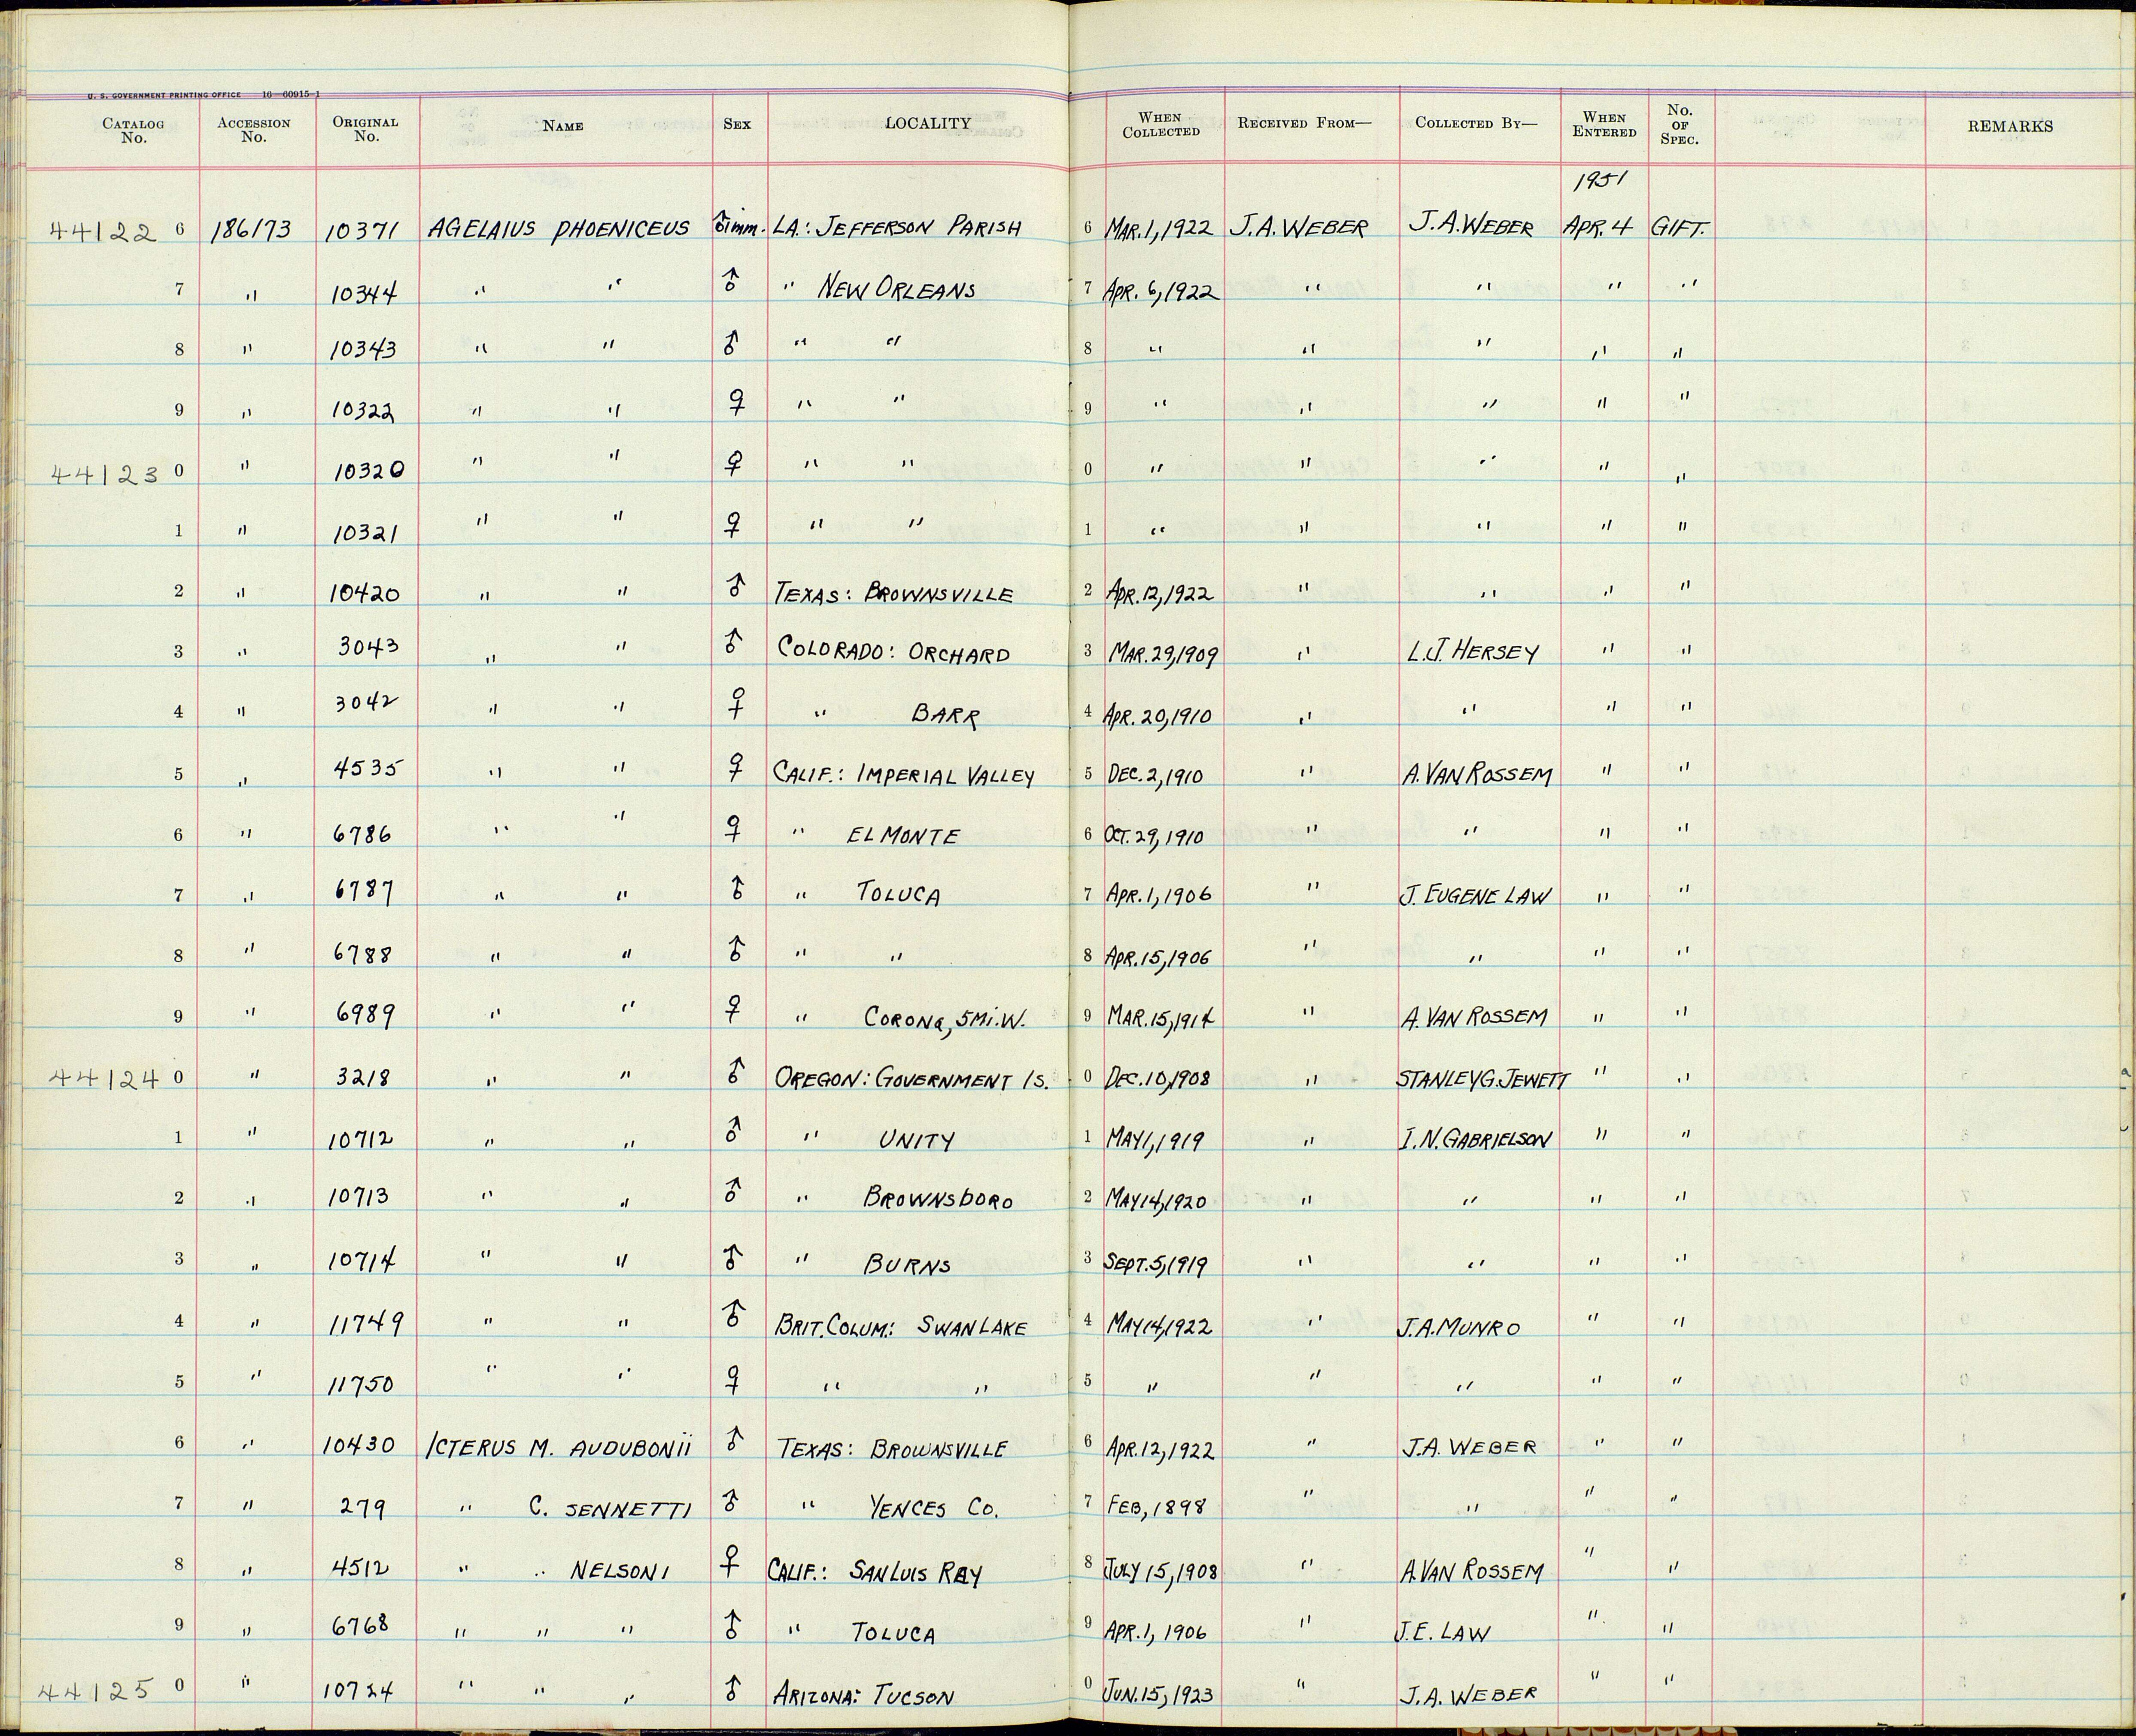 U. S. GOVERNMENT PRINTING OFFICE 16—60915-1
CATALOG No. ACCESSION No. ORIGINAL No. NAME SEX LOCALITY WHEN COLLECTED RECEIVED FROM— COLLECTED BY— WHEN ENTERED No. OF SPEC. REMARKS
1951
44122 6 186173 10371 AGELAIUS PHOENICEUS ♂imm. LA.: JEFFERSON PARISH 6 MAR. 1, 1922 J.A. WEBER J.A. WEBER APR. 4 GIFT.
7 " 10344 " " ♂ " NEW ORLEANS 7 APR. 6, 1922 " " " "
8 " 10343 " " ♂ " " 8 " " " " "
9 " 10322 " " ♀ " " 9 " " " " "
44123 0 " 10320 " " ♀ " " 0 " " " " "
1 " 10321 " " ♀ " " 1 " " " " "
2 " 10420 " " ♂ TEXAS: BROWNSVILLE 2 APR. 12, 1922 " " " "
3 " 3043 " " ♂ COLORADO: ORCHARD 3 MAR. 29, 1909 " L.J. HERSEY " "
4 " 3042 " " ♀ " BARR 4 APR. 20, 1910 " " " "
5 " 4535 " " ♀ CALIF.: IMPERIAL VALLEY 5 DEC. 2, 1910 " A. VAN ROSSEM " "
6 " 6786 " " ♀ " EL MONTE 6 OCT. 29, 1910 " " " "
7 " 6787 " " ♂ " TOLUCA 7 APR. 1, 1906 " J. EUGENE LAW " "
8 " 6788 " " ♂ " " 8 APR. 15, 1906 " " " "
9 " 6989 " " ♀ " CORONA, 5 MI. W. 9 MAR. 15, 1914 " A. VAN ROSSEM " "
44124 0 " 3218 " " ♂ OREGON: GOVERNMENT IS. 0 DEC. 10, 1908 " STANLEY G. JEWETT " "
1 " 10712 " " ♂ " UNITY 1 MAY 1, 1919 " I. N. GABRIELSON " "
2 " 10713 " " ♂ " BROWNSBORO 2 MAY 14, 1920 " " " "
3 " 10714 " " ♂ " BURNS 3 SEPT. 5, 1919 " " " "
4 " 11749 " " ♂ BRIT. COLUM: SWAN LAKE 4 MAY 14, 1922 " J.A. MUNRO " "
5 " 11750 " " ♀ " " 5 " " " " "
6 " 10430 ICTERUS M. AUDUBONII ♂ TEXAS: BROWNSVILLE 6 APR. 12, 1922 " J.A. WEBER " "
7 " 279 " C. SENNETTI ♂ " YENCES CO. 7 FEB, 1898 " " " "
8 " 4512 " " NELSONI ♀ CALIF.: SAN LUIS REY 8 JULY 15, 1908 " A VAN ROSSEM " "
9 " 6768 " " " ♂ " TOLUCA 9 APR. 1, 1906 " J.E. LAW " "
44125 0 " 10724 " " " ♂ ARIZONA: TUCSON 0 JUN. 15, 1923 " J.A. WEBER " "